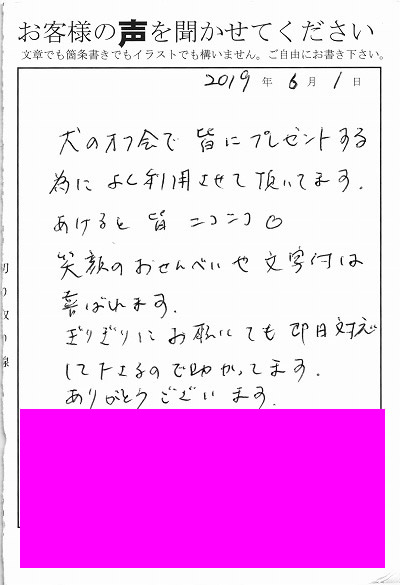 お客様の声を聞かせてください
文章でも箇条書きでもイラストでも構いません。ご自由にお書き下さい。
2019年6月1日
犬のオフ会で皆にプレゼントする
為によく利用させて頂いてます.
あげると皆ニコニコ〇
笑顔のおせんべいや文字付は
喜ばれます.
ぎりぎりにお願いしても即日対応
して下さるので助かってます.
ありがとうございます.
切り取り線